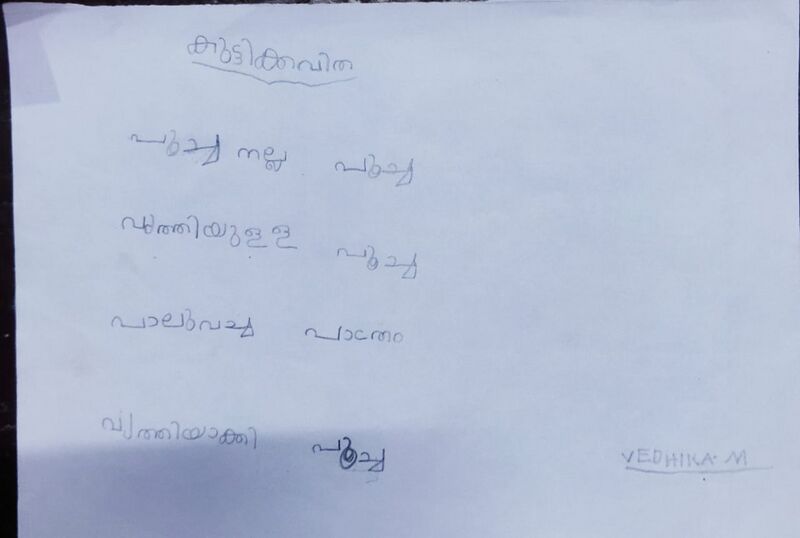 കുട്ടിക്കവിത
പൂച്ച നല്ല പൂച്ച
വൃത്തിയുളള പൂച്ച
പാലുവച്ച പാത്രം
വൃത്തിയാക്കി പൂച്ച
VEDHIKA. M